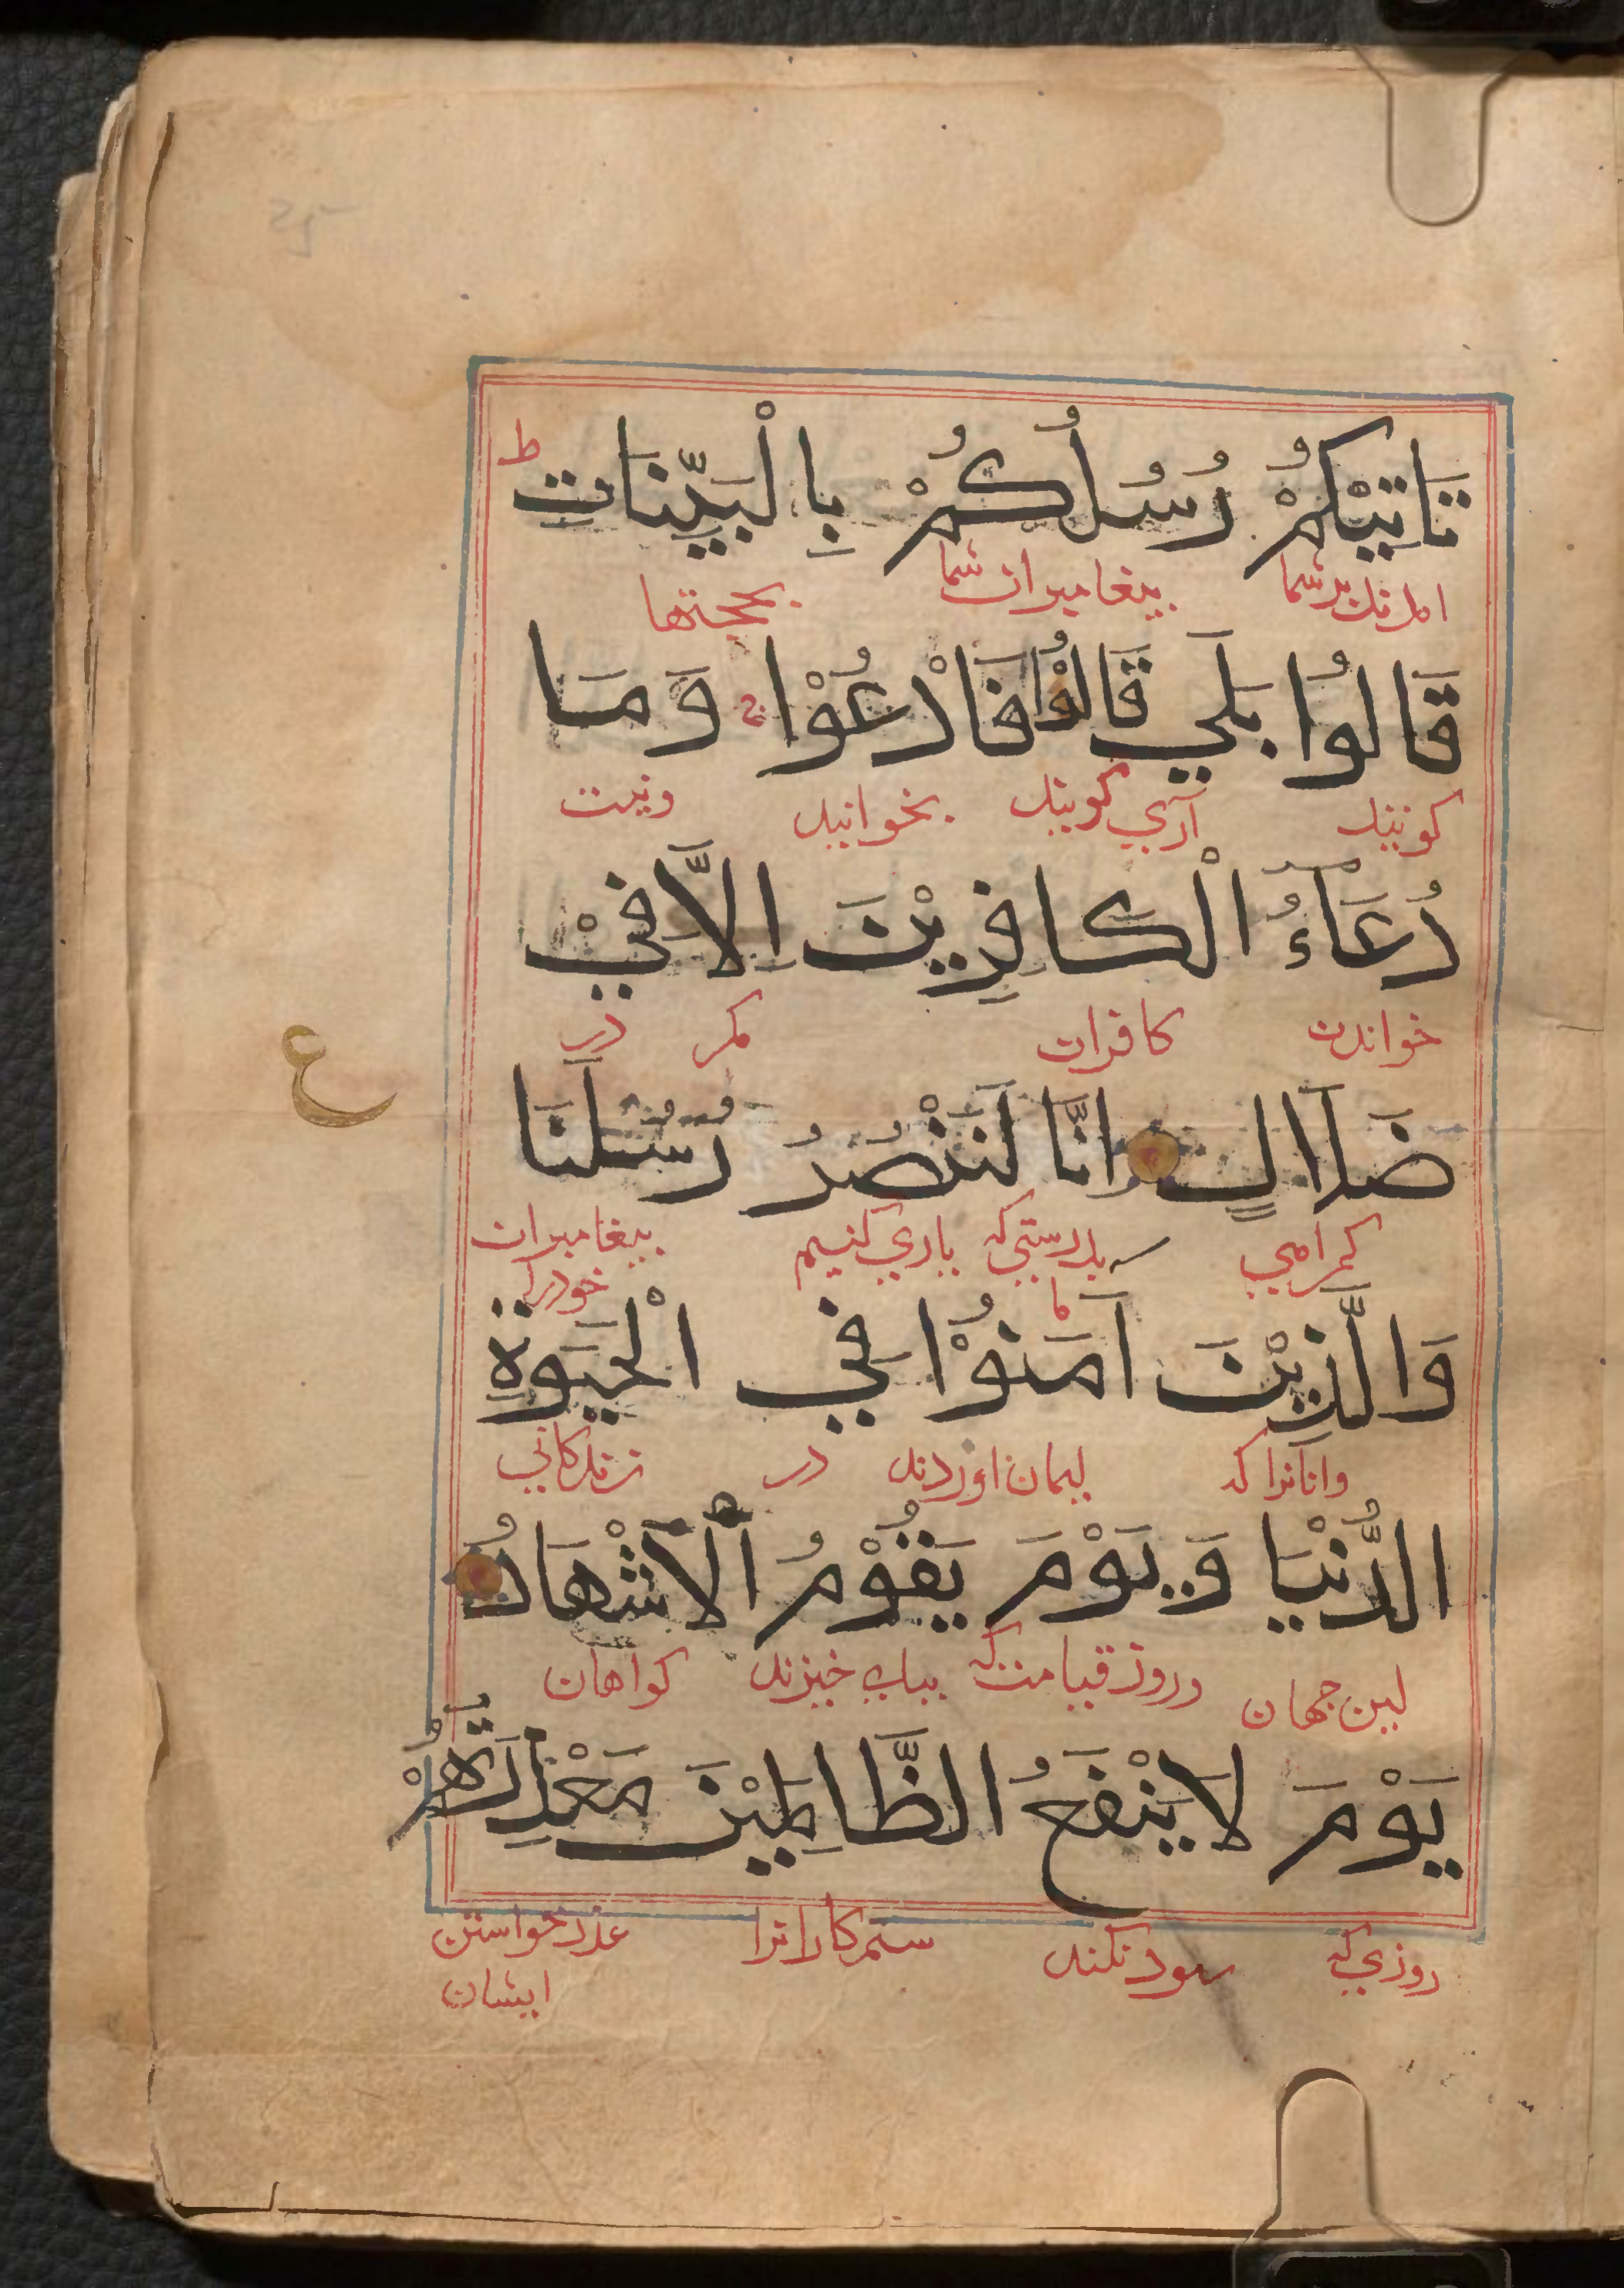 تَاتِيْكُمْ رُسُلُكُمْ بِالْبَيِّنَاتِ ط
امدند بر شما پیغامبران شما بحجتها
قَالُوا بَلَي قَالُوْا فَادْعُوْا ج وَمَا
کویند آري کویند بخوانید ونیست
دُعَاءُ الْكَافِرِيْنَ اِلَّا فِيْ
خواندن کافران مکر در
ضَلَاالٍ اِنَّا لَنَنْصُرُ رُسُلَنَا
کمراهي بدرستي که ما یاري کنیم پیغامبران خودرا
ع
وَالَّذِيْنَ آمَنُوْا فِي الْحَيَوةِ
وانانرا که ایمان اوردند در زندکاني
الدُّنْيَا وَيَوْمَ يَقُوْمُ الْاَشْهَادُ
این جهان وروز قیامت که بپاي خیزند کواهان
يَوْمَ لَا يَنْفَعُ الظَّالِمِيْنَ مَعْذِرَتُهُمْ
روزي که سود نکند ستمکارانرا عذر خواستن
ایشان